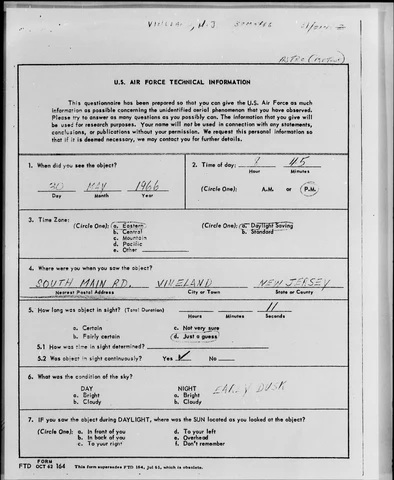 VINELAND, N.J.
ASTRO (METEOR)
U.S. AIR FORCE TECHNICAL INFORMATION
This questionnaire has been prepared so that you can give the U.S. Air Force as much
information as possible concerning the unidentified aerial phenomenon that you have observed.
Please try to answer as many questions as you possibly can. The information that you give will
be used for research purposes. Your name will not be used in connection with any statements,
conclusions, or publications without your permission. We request this personal information so
that if it is deemed necessary, we may contact you for further details.
1. When did you see the object?
20 MAY 1966
Day Month Year
2. Time of day: 8 45
Hour Minutes
(Circle One): A.M. or P.M.
3. Time Zone:
(Circle One): a. Eastern
b. Central
c. Mountain
d. Pacific
e. Other
(Circle One): a. Daylight Saving
b. Standard
4. Where were you when you saw the object?
SOUTH MAIN RD. VINELAND NEW JERSEY
Nearest Postal Address City or Town State or County
5. How long was object in sight? (Total Duration) 11
Hours Minutes Seconds
a. Certain c. Not very sure
b. Fairly certain d. Just a guess
5.1 How was time in sight determined?
5.2 Was object in sight continuously? Yes ✓ No
6. What was the condition of the sky?
DAY NIGHT EARLY DUSK
a. Bright a. Bright
b. Cloudy b. Cloudy
7. IF you saw the object during DAYLIGHT, where was the SUN located as you looked at the object?
(Circle One): a. In front of you d. To your left
b. In back of you e. Overhead
c. To your right f. Don't remember
FORM
FTD OCT 62 164 This form supersedes FTD 164, Jul 61, which is obsolete.